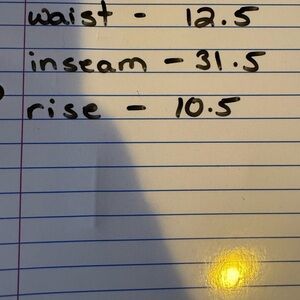 waist - 12.5
inseam - 31.5
rise - 10.5